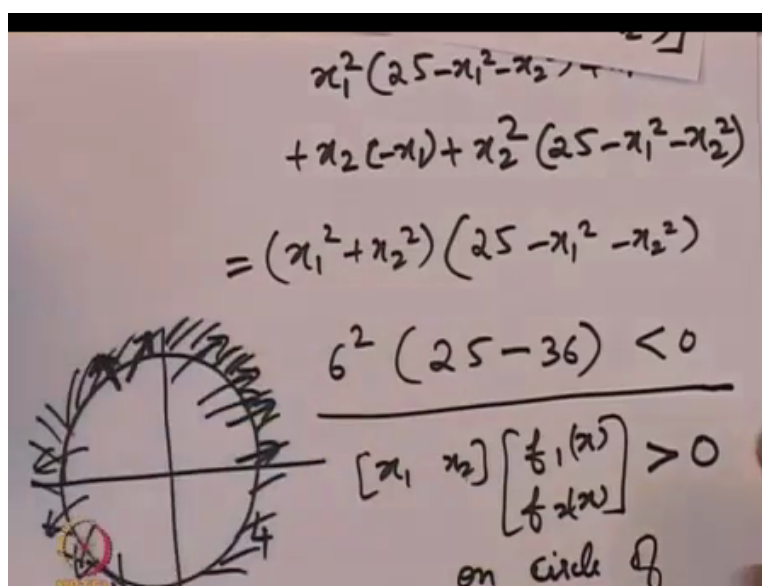 x₁²(25-x₁²-x₂
+ x₂(-x₁) + x₂²(25-x₁²-x₂²)
= (x₁²+x₂²)(25-x₁²-x₂²)
6²(25-36) < 0
[x₁ x₂] [f₁(x) f₂(x)] > 0
4
on circle of